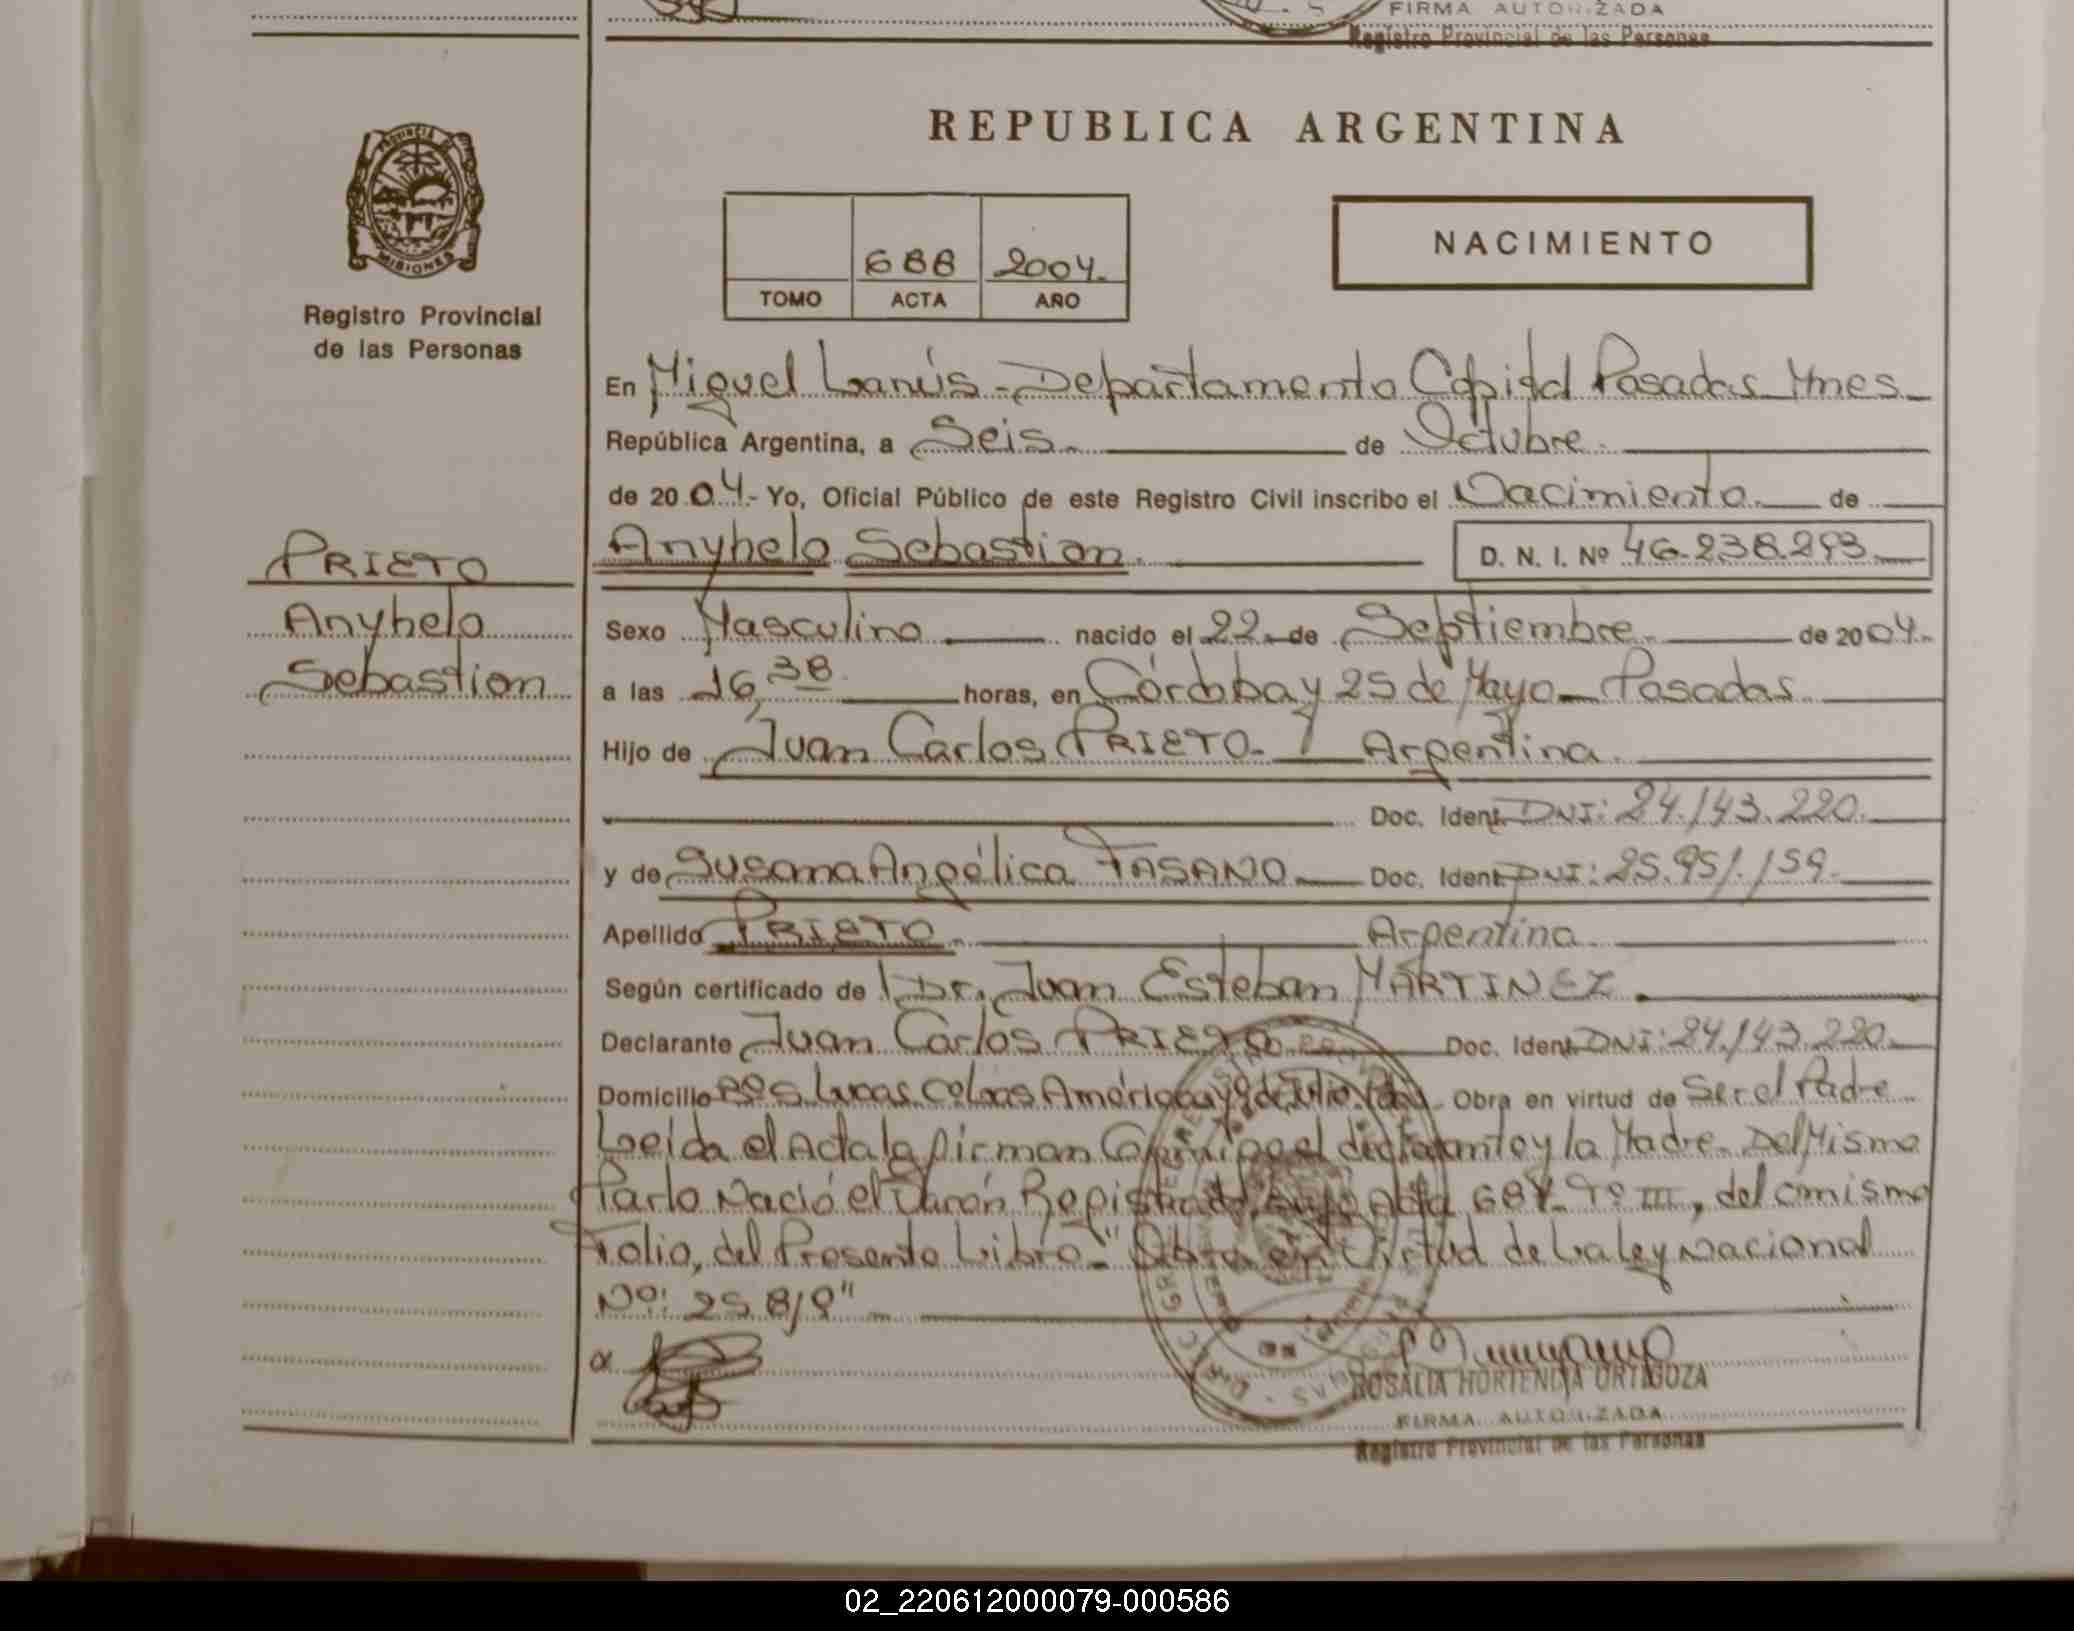 FIRMA AUTORIZADA
Registro Provincial de las Personas
REPUBLICA ARGENTINA
PROVINCIA DE
MISIONES
Registro Provincial
de las Personas
688 2004.
TOMO ACTA AÑO
NACIMIENTO
En Miguel Lanús - Departamento Capital Posadas Mnes
República Argentina, a Seis de Octubre
de 2004.- Yo, Oficial Público de este Registro Civil inscribo el Nacimiento de
Anyhelo Sebastian. D. N. I. Nº 46.238.293
PRIETO
Anyhelo
Sebastian
Sexo Masculino nacido el 22 de Septiembre de 2004.
a las 16,38 horas, en Córdoba y 25 de Mayo - Posadas.
Hijo de Juan Carlos PRIETO. Argentina.
Doc. Ident. DNI: 24.143.220.
y de Susana Angélica FASANO Doc. Ident. DNI: 25.951.159.
Apellido PRIETO. Argentina.
Según certificado de Dr. Juan Esteban MARTINEZ.
Declarante Juan Carlos PRIETO Doc. Ident. DNI: 24.143.220.
Domicilio Bº S. Lucas América y 9 de Julio Obra en virtud de Ser el Padre
Leida el Acta la firman Conmigo el declarante y la Madre - Del Mismo
Parto Nació el Varón Registrado bajo Acta 687 - Tº III, del mismo
Folio, del Presente Libro - "Obra en Virtud de la Ley Nacional
Nº: 25.819"
ROSALIA HORTENCIA ORTIGOZA
FIRMA AUTORIZADA
Registro Provincial de las Personas
02_220612000079-000586